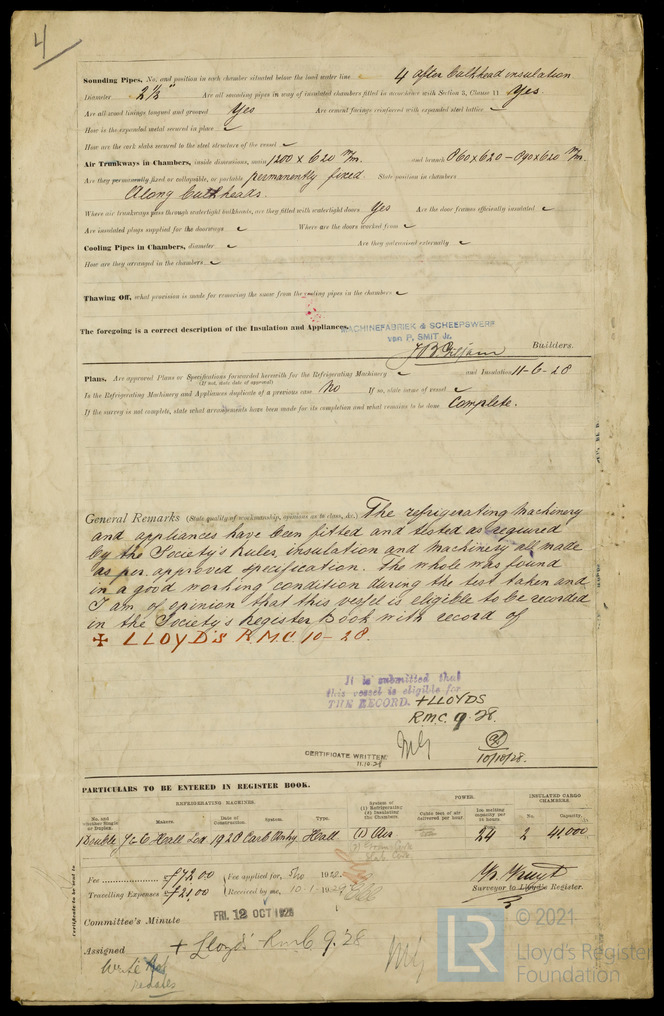 4
Sounding Pipes, No. and position in each chamber situated below the load water line 4 after bulkhead insulation
Diameter 2½" Are all sounding pipes in way of insulated chambers fitted in accordance with Section 3, Clause 11 Yes.
Are all wood linings tongued and grooved Yes Are cement facings reinforced with expanded steel lattice ✓
How is the expanded metal secured in place ✓
How are the cork slabs secured to the steel structure of the vessel ✓
Air Trunkways in Chambers, inside dimensions, main 1200 x 620 m/m. and branch 860x620 – 890x620 m/m.
Are they permanently fixed or collapsible, or portable permanently fixed State position in chambers
Along bulkheads.
Where air trunkways pass through watertight bulkheads, are they fitted with watertight doors Yes Are the door frames efficiently insulated ✓
Are insulated plugs supplied for the doorways ✓ Where are the doors worked from ✓
Cooling Pipes in Chambers, diameter ✓ Are they galvanised externally ✓
How are they arranged in the chambers ✓
Thawing Off, what provision is made for removing the snow from the cooling pipes in the chambers ✓
The foregoing is a correct description of the Insulation and Appliances.
MACHINEFABRIEK & SCHEEPSWERF
van P. SMIT Jr.
Builders.
Plans. Are approved Plans or Specifications forwarded herewith for the Refrigerating Machinery ✓ and Insulation 11-6-28
(If not, state date of approval)
Is the Refrigerating Machinery and Appliances duplicate of a previous case No If so, state name of vessel ✓
If the survey is not complete, state what arrangements have been made for its completion and what remains to be done Complete.
General Remarks (State quality of workmanship, opinions as to class, &c.) The refrigerating machinery
and appliances have been fitted and tested as required
by the Society's Rules, insulation and machinery all made
as per approved specification. The whole was found
in a good working condition during the test taken and
I am of opinion that this vessel is eligible to be recorded
in the Society's Register Book with record of
✠ LLOYD'S R.M.C. 10-28.
It is submitted that
this vessel is eligible for
THE RECORD. + LLOYDS
R.M.C. 9.28.
10/10/28.
CERTIFICATE WRITTEN
11.10.28
PARTICULARS TO BE ENTERED IN REGISTER BOOK.
REFRIGERATING MACHINES. System of (1) Refrigerating (2) Insulating the Chambers. POWER. INSULATED CARGO CHAMBERS.
No. and whether Single or Duplex. Makers. Date of Construction. System. Type. Cubic feet of air delivered per hour. Ice melting capacity per 24 hours No. Capacity.
Double J & E Hall Ltd 1928 Carb Anhy. Hall (1) Air 24 2 41000
Fee £72.00 Fee applied for, 1928.
Travelling Expenses £21.00 Received by me, 10.1.1929
Surveyor to Lloyd's Register.
Certificate to be sent to
Committee's Minute FRI. 12 OCT 1928
Assigned + Lloyd's RMC 9.28
Write
© 2021
LR
Lloyd's Register
Foundation